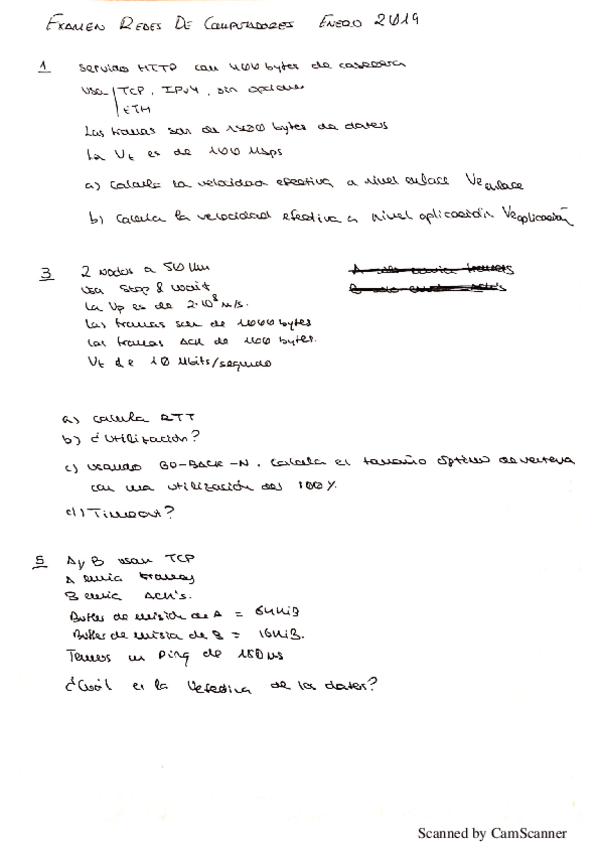 EXAMEN REDES DE COMPUTADORES ENERO 2019
1 Servidor HTTP con 400 bytes de cabecera
usa TCP, IPv4, sin opciones
ETH
Las tramas son de 1500 bytes de datos
La Vt es de 100 Mbps
a) Calcula la velocidad efectiva a nivel enlace Ve enlace
b) Calcula la velocidad efectiva a nivel aplicación Ve aplicación
3 2 nodos a 50 Km
usa Stop & wait
La Vp es de 2·10⁸ m/s.
Las tramas son de 1000 bytes
las tramas ACK de 100 bytes.
Vt de 10 Mbits/segundo
a) calcula RTT
b) ¿Utilización?
c) usando GO-BACK-N. Calcula el tamaño óptimo de ventana
con una utilización del 100%.
d) Timeout?
5 A y B usan TCP
A envia tramas
B envia ACK's.
Buffer de emisión de A = 64KiB
Buffer de emisión de B = 16KiB.
Temos un Ping de 150 ms
¿Cuál es la Vefectiva de los datos?
Scanned by CamScanner